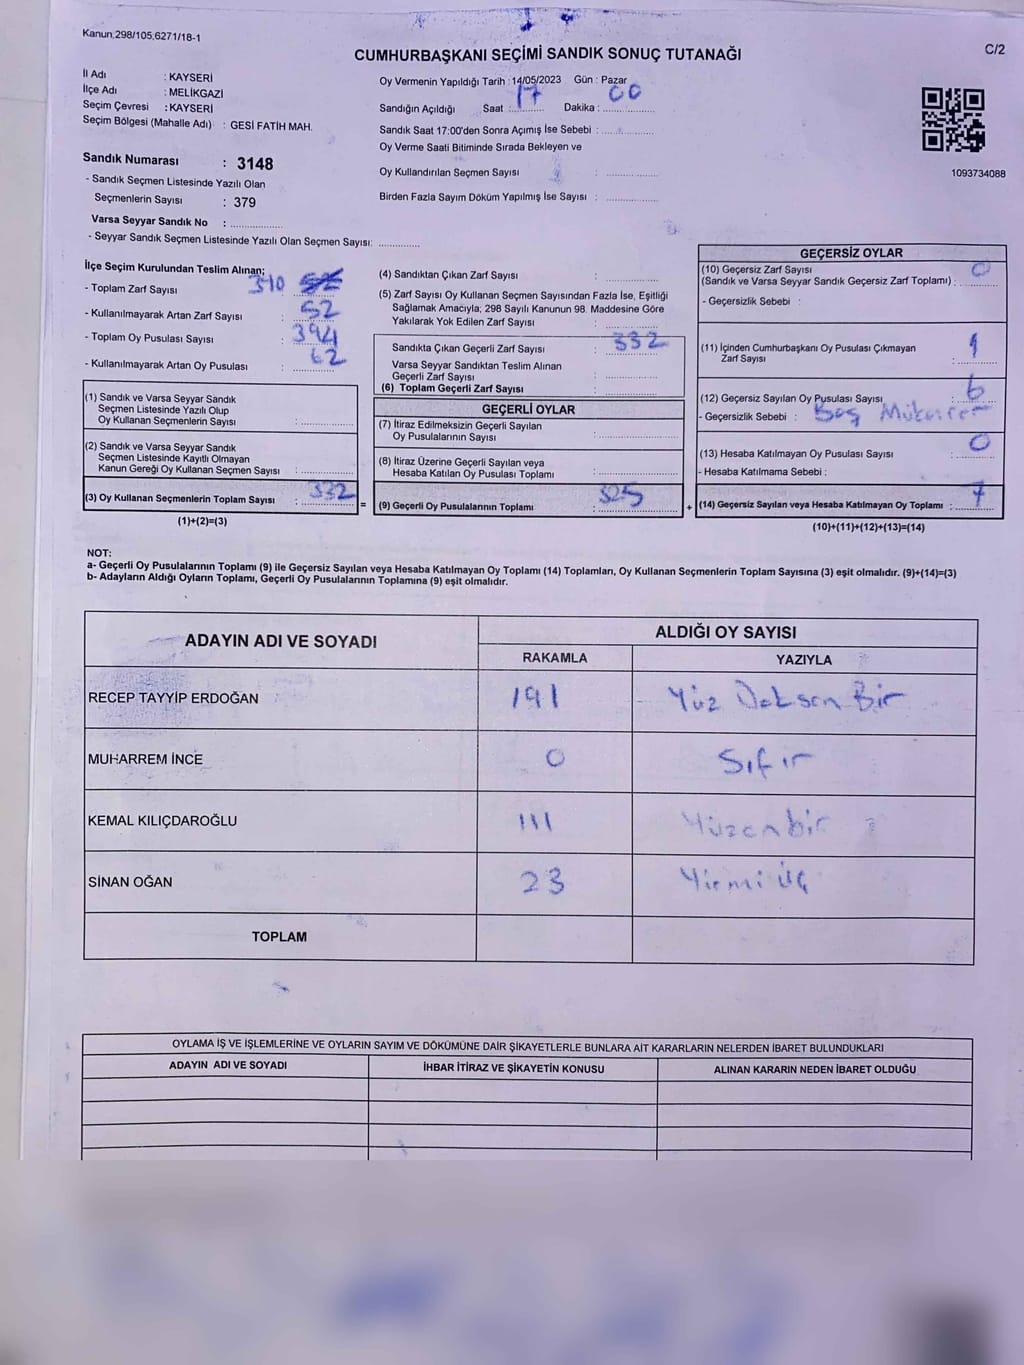 Kanun,298/105,6271/18-1
C/2
CUMHURBAŞKANI SEÇİMİ SANDIK SONUÇ TUTANAĞI
İl Adı : KAYSERİ
İlçe Adı : MELİKGAZİ
Seçim Çevresi : KAYSERİ
Seçim Bölgesi (Mahalle Adı) : GESİ FATİH MAH.
Sandık Numarası : 3148
- Sandık Seçmen Listesinde Yazılı Olan
Seçmenlerin Sayısı : 379
Varsa Seyyar Sandık No :
- Seyyar Sandık Seçmen Listesinde Yazılı Olan Seçmen Sayısı:
Oy Vermenin Yapıldığı Tarih : 14/05/2023 Gün : Pazar
Sandığın Açıldığı Saat : 17 Dakika : 00
Sandık Saat 17:00'den Sonra Açımış İse Sebebi :
Oy Verme Saati Bitiminde Sırada Bekleyen ve
Oy Kullandırılan Seçmen Sayısı :
Birden Fazla Sayım Döküm Yapılmış İse Sayısı :
1093734088
İlçe Seçim Kurulundan Teslim Alınan;
- Toplam Zarf Sayısı :
- Kullanılmayarak Artan Zarf Sayısı : 52
- Toplam Oy Pusulası Sayısı : 394
- Kullanılmayarak Artan Oy Pusulası : 62
(1) Sandık ve Varsa Seyyar Sandık
Seçmen Listesinde Yazılı Olup
Oy Kullanan Seçmenlerin Sayısı :
(2) Sandık ve Varsa Seyyar Sandık
Seçmen Listesinde Kayıtlı Olmayan
Kanun Gereği Oy Kullanan Seçmen Sayısı :
(3) Oy Kullanan Seçmenlerin Toplam Sayısı : 332
(1)+(2)=(3)
(4) Sandıktan Çıkan Zarf Sayısı :
(5) Zarf Sayısı Oy Kullanan Seçmen Sayısından Fazla İse, Eşitliği
Sağlamak Amacıyla; 298 Sayılı Kanunun 98. Maddesine Göre
Yakılarak Yok Edilen Zarf Sayısı :
Sandıkta Çıkan Geçerli Zarf Sayısı : 332
Varsa Seyyar Sandıktan Teslim Alınan
Geçerli Zarf Sayısı :
(6) Toplam Geçerli Zarf Sayısı :
GEÇERLİ OYLAR
(7) İtiraz Edilmeksizin Geçerli Sayılan
Oy Pusulalarının Sayısı :
(8) İtiraz Üzerine Geçerli Sayılan veya
Hesaba Katılan Oy Pusulası Toplamı :
= (9) Geçerli Oy Pusulalarının Toplamı : 325
GEÇERSİZ OYLAR
(10) Geçersiz Zarf Sayısı
(Sandık ve Varsa Seyyar Sandık Geçersiz Zarf Toplamı) : 0
- Geçersizlik Sebebi :
(11) İçinden Cumhurbaşkanı Oy Pusulası Çıkmayan
Zarf Sayısı : 1
(12) Geçersiz Sayılan Oy Pusulası Sayısı : 6
- Geçersizlik Sebebi : Boş
(13) Hesaba Katılmayan Oy Pusulası Sayısı : 0
- Hesaba Katılmama Sebebi :
+ (14) Geçersiz Sayılan veya Hesaba Katılmayan Oy Toplamı : 7
(10)+(11)+(12)+(13)=(14)
NOT:
a- Geçerli Oy Pusulalarının Toplamı (9) ile Geçersiz Sayılan veya Hesaba Katılmayan Oy Toplamı (14) Toplamları, Oy Kullanan Seçmenlerin Toplam Sayısına (3) eşit olmalıdır. (9)+(14)=(3)
b- Adayların Aldığı Oyların Toplamı, Geçerli Oy Pusulalarının Toplamına (9) eşit olmalıdır.
ADAYIN ADI VE SOYADI ALDIĞI OY SAYISI
RAKAMLA YAZIYLA
RECEP TAYYİP ERDOĞAN 191 Yüz Doksan Bir
MUHARREM İNCE 0 Sıfır
KEMAL KILIÇDAROĞLU 111 Yüzonbir
SİNAN OĞAN 23 Yirmi Üç
TOPLAM
OYLAMA İŞ VE İŞLEMLERİNE VE OYLARIN SAYIM VE DÖKÜMÜNE DAİR ŞİKAYETLERLE BUNLARA AİT KARARLARIN NELERDEN İBARET BULUNDUKLARI
ADAYIN ADI VE SOYADI İHBAR İTİRAZ VE ŞİKAYETİN KONUSU ALINAN KARARIN NEDEN İBARET OLDUĞU